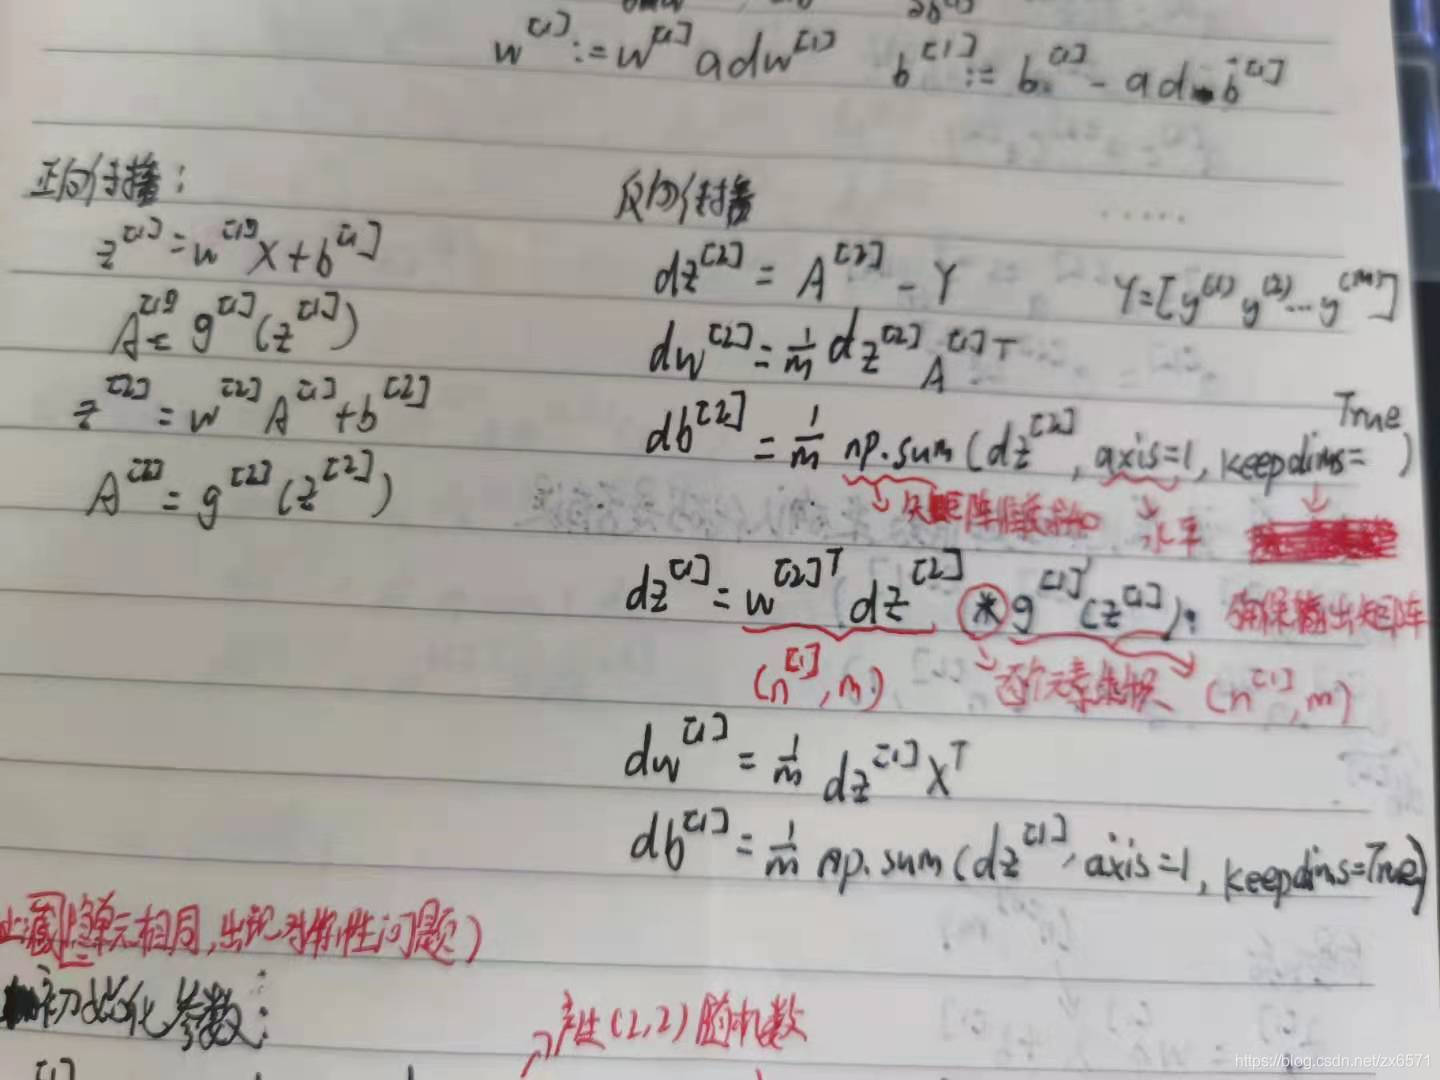 w^[1] := w^[1] a dw^[1]    b^[1] := b^[1] - a d b^[1]
正向传播：
z^[1] = w^[1] X + b^[1]
A^[1] = g^[1](z^[1])
z^[2] = w^[2] A^[1] + b^[2]
A^[2] = g^[2](z^[2])
反向传播
......
dz^[2] = A^[2] - Y    Y = [y^(1) y^(2) ... y^(m)]
dw^[2] = 1/m dz^[2] A^[1]T
db^[2] = 1/m np.sum(dz^[2], axis=1, keepdims=True)
水平
dz^[1] = w^[2]T dz^[2] * g^[1]'(z^[1]); 确保输出矩阵
(n^[1], m) 逐个元素乘积 (n^[1], m)
dw^[1] = 1/m dz^[1] X^T
db^[1] = 1/m np.sum(dz^[1], axis=1, keepdims=True)
藏隐单元相同，出现对称性问题)
初始化参数：
产生(2,2)随机数
https://blog.csdn.net/zx6571